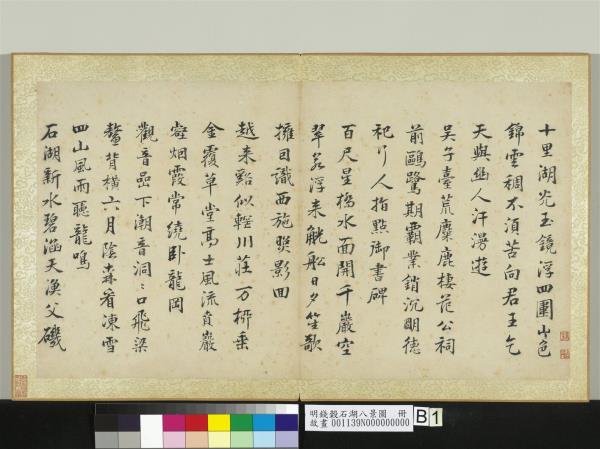 十里湖光玉鏡浮四圍山色
錦雲稠不須苦向君王乞
天與幽人汗漫遊
吳子臺荒麋鹿棲范公祠
前鷗鷺期霸業銷沉明德
祀行人指點御書碑
百尺星橋水面開千巖空
翠名浮来觥船日夕笙歌
擁目識西施照影回
越来谿似輞川莊万桥垂
金覆草堂高士風流賁巖
壑烟霞常繞卧龍岡
觀音嵒下潮音洞洞口飛梁
鰲背横六月陰森看凍雪
四山風雨聽龍鳴
石湖新水碧涵天漁父磯
明錢榖石湖八景圖 冊
故畫 001139N000000000
B 1